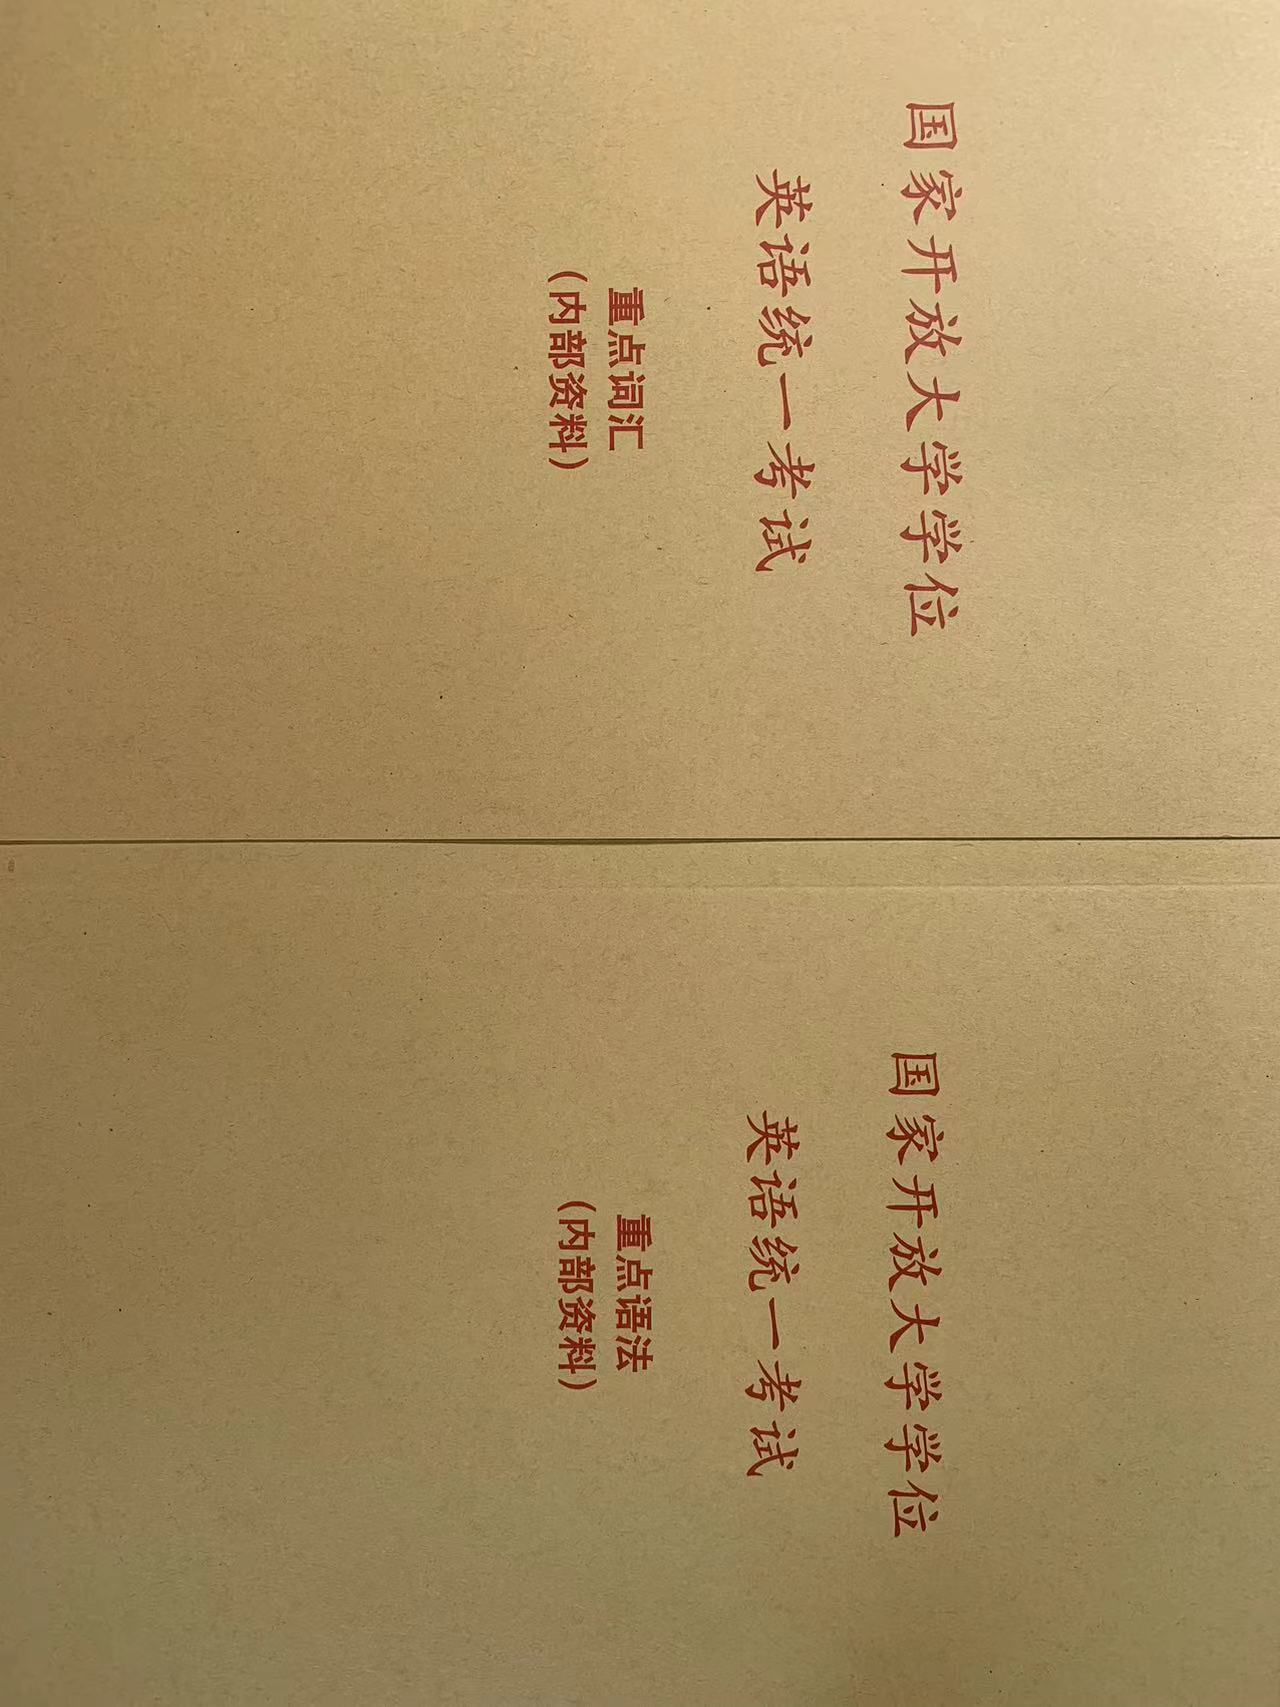 国家开放大学学位
英语统一考试
重点词汇
（内部资料）
国家开放大学学位
英语统一考试
重点语法
（内部资料）